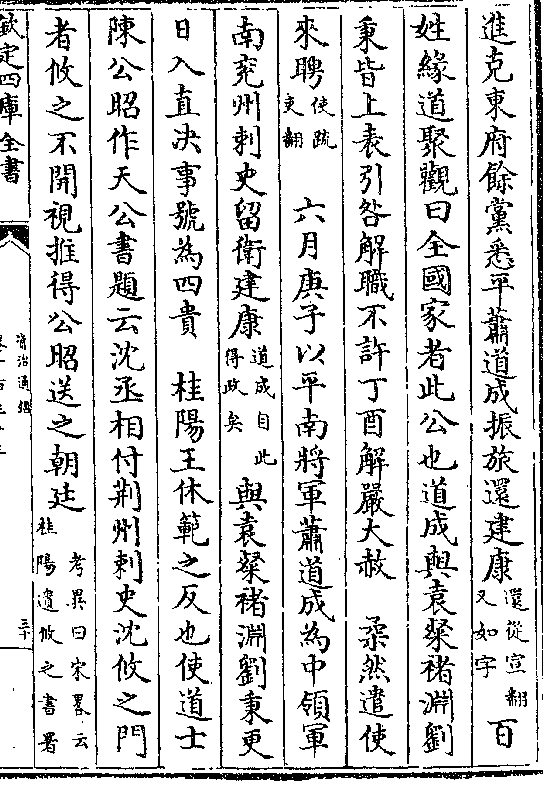 進克東府餘黨悉平蕭道成振旅還建康還從宣翻又如字百
姓緣道聚觀曰全國家者此公也道成與袁粲褚淵劉
秉皆上表引咎解職不許丁酉解嚴大赦 柔然遣使
來聘使疏吏翻 六月庚子以平南將軍蕭道成為中領軍
南兗州刺史留衛建康道成自此得政矣 與袁粲褚淵劉秉更
日入直決事號為四貴 桂陽王休範之反也使道士
陳公昭作天公書題云沈丞相付荆州刺史沈攸之門
者攸之不開視推得公昭送之朝廷考異曰宋畧云桂陽遺攸之書署
欽定四庫全書
資治通鑑
三十